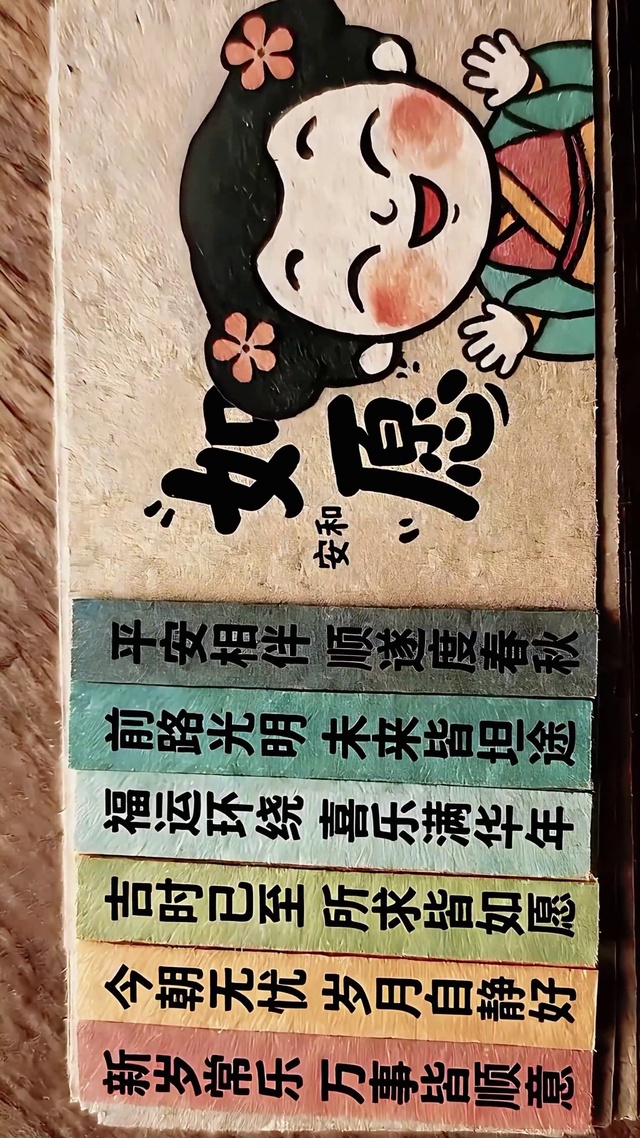 新岁常乐 万事皆顺意
今朝无忧 岁月自静好
吉时已至 所求皆如愿
福运环绕 喜乐满华年
前路光明 未来皆坦途
平安相伴 顺遂度春秋
如愿
安和